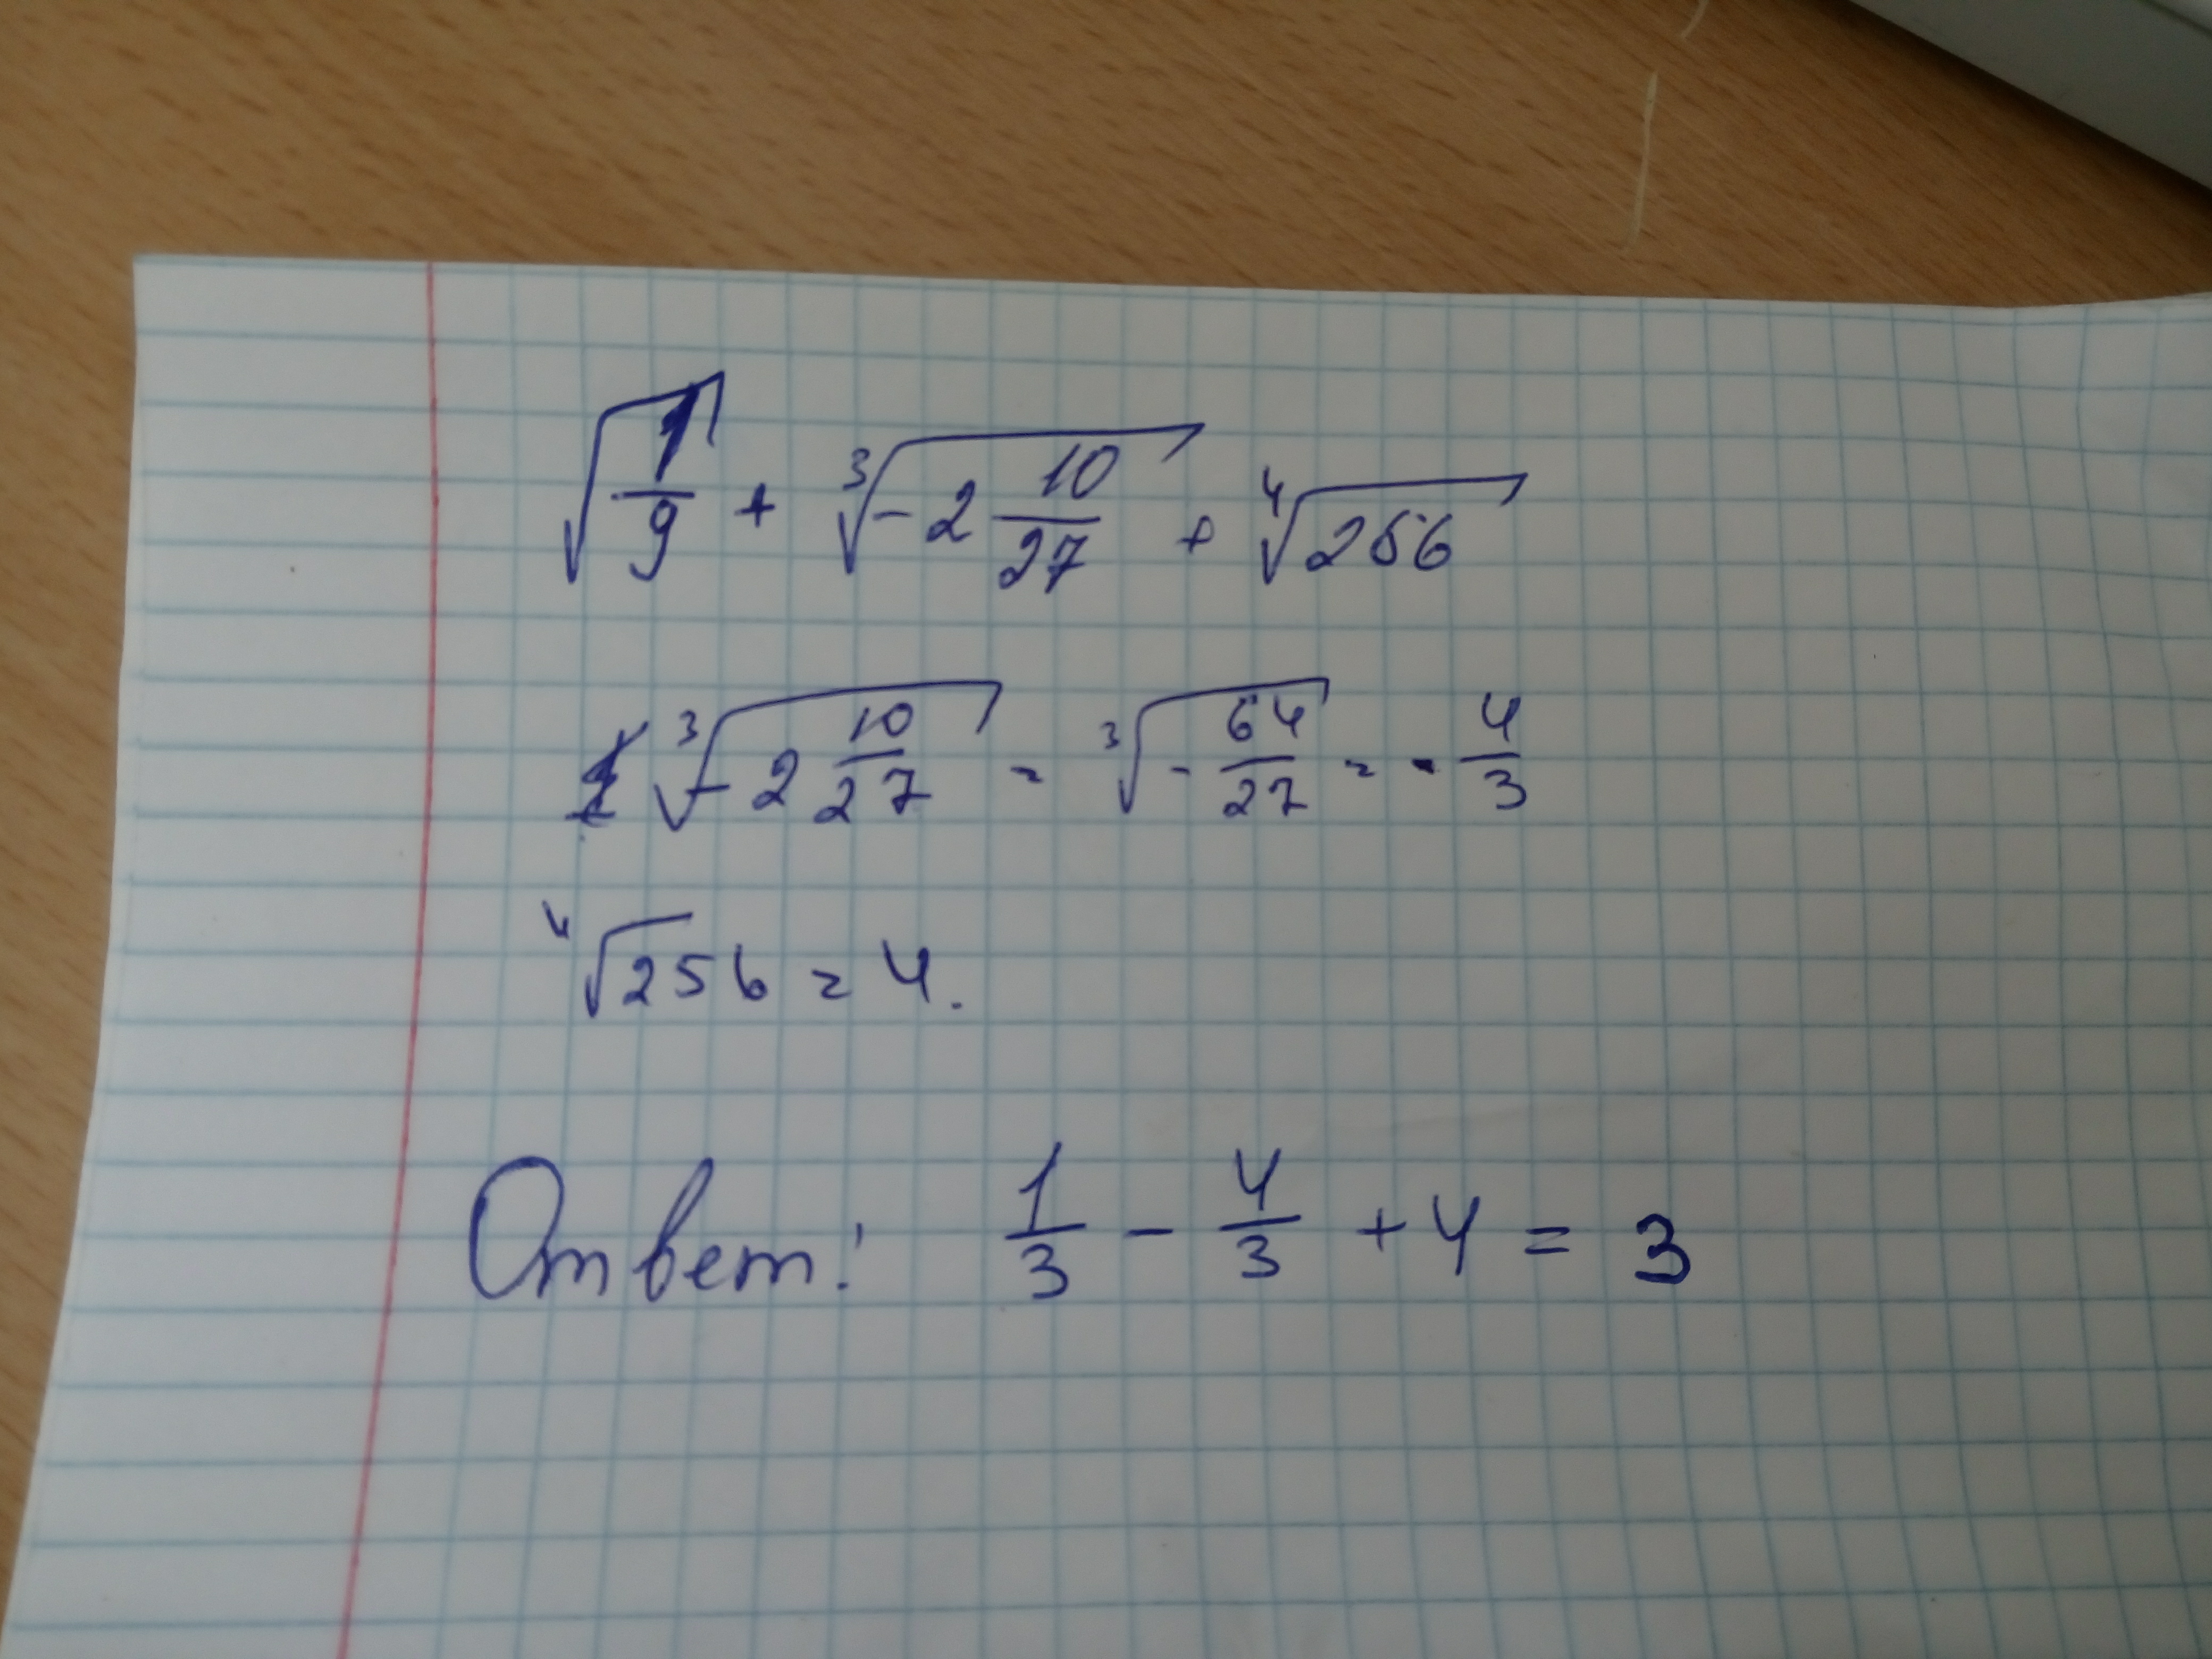 √(1/9) + ³√(-2 10/27) + ⁴√256
³√(-2 10/27) = ³√(-64/27) = -4/3
⁴√256 = 4.
Ответ: 1/3 - 4/3 + 4 = 3